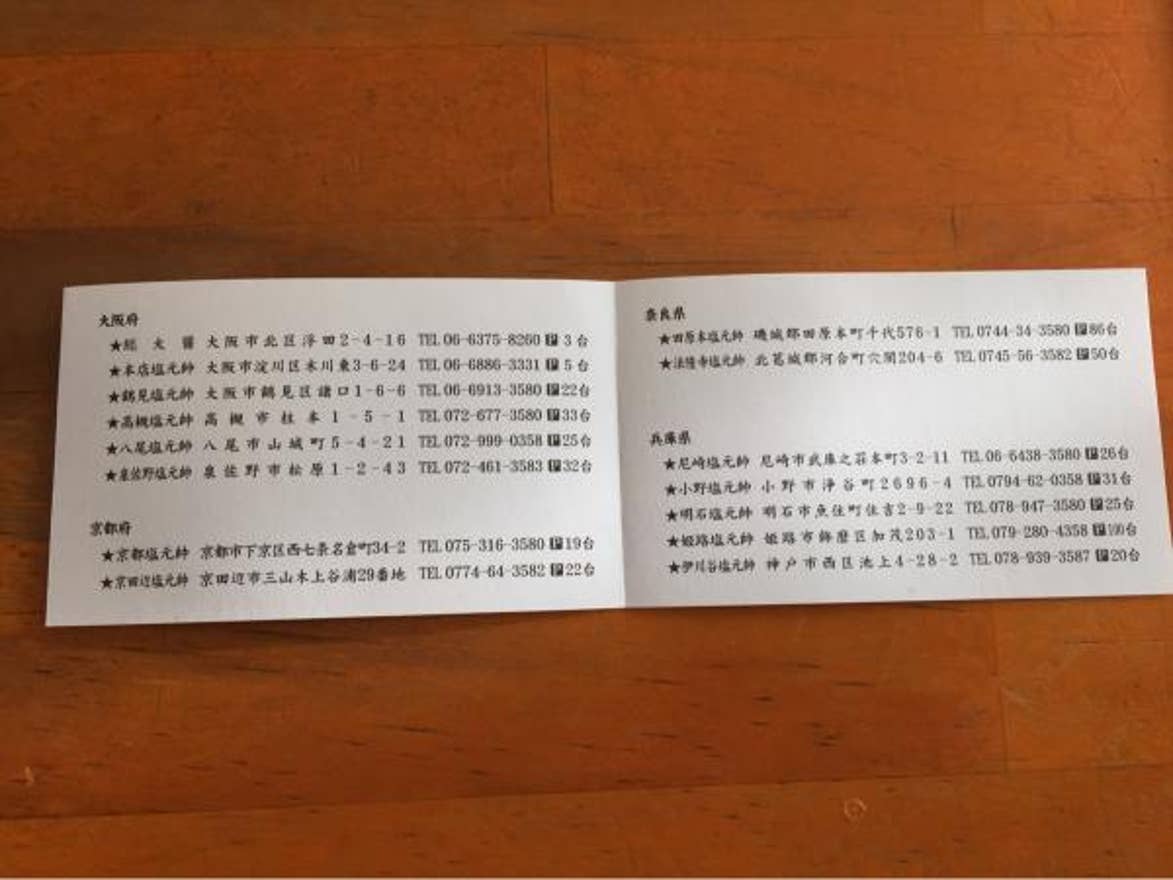 大阪府
★総大醤 大阪市北区浮田2-4-16 TEL 06-6375-8260 🅿 3台
★本店塩元帥 大阪市淀川区木川東3-6-24 TEL 06-6886-3331 🅿 5台
★鶴見塩元帥 大阪市鶴見区諸口1-6-6 TEL 06-6913-3580 🅿22台
★高槻塩元帥 高槻市柱本1-5-1 TEL 072-677-3580 🅿33台
★八尾塩元帥 八尾市山城町5-4-21 TEL 072-999-0358 🅿25台
★泉佐野塩元帥 泉佐野市松原1-2-43 TEL 072-461-3583 🅿32台
京都府
★京都塩元帥 京都市下京区西七条名倉町34-2 TEL 075-316-3580 🅿19台
★京田辺塩元帥 京田辺市三山木上谷浦29番地 TEL 0774-64-3582 🅿22台
奈良県
★田原本塩元帥 磯城郡田原本町千代576-1 TEL 0744-34-3580 🅿86台
★法隆寺塩元帥 北葛城郡河合町穴闇204-6 TEL 0745-56-3582 🅿50台
兵庫県
★尼崎塩元帥 尼崎市武庫之荘本町3-2-11 TEL 06-6438-3580 🅿26台
★小野塩元帥 小野市浄谷町2696-4 TEL 0794-62-0358 🅿31台
★明石塩元帥 明石市魚住町住吉2-9-22 TEL 078-947-3580 🅿25台
★姫路塩元帥 姫路市飾磨区加茂203-1 TEL 079-280-4358 🅿100台
★伊川谷塩元帥 神戸市西区池上4-28-2 TEL 078-939-3587 🅿20台